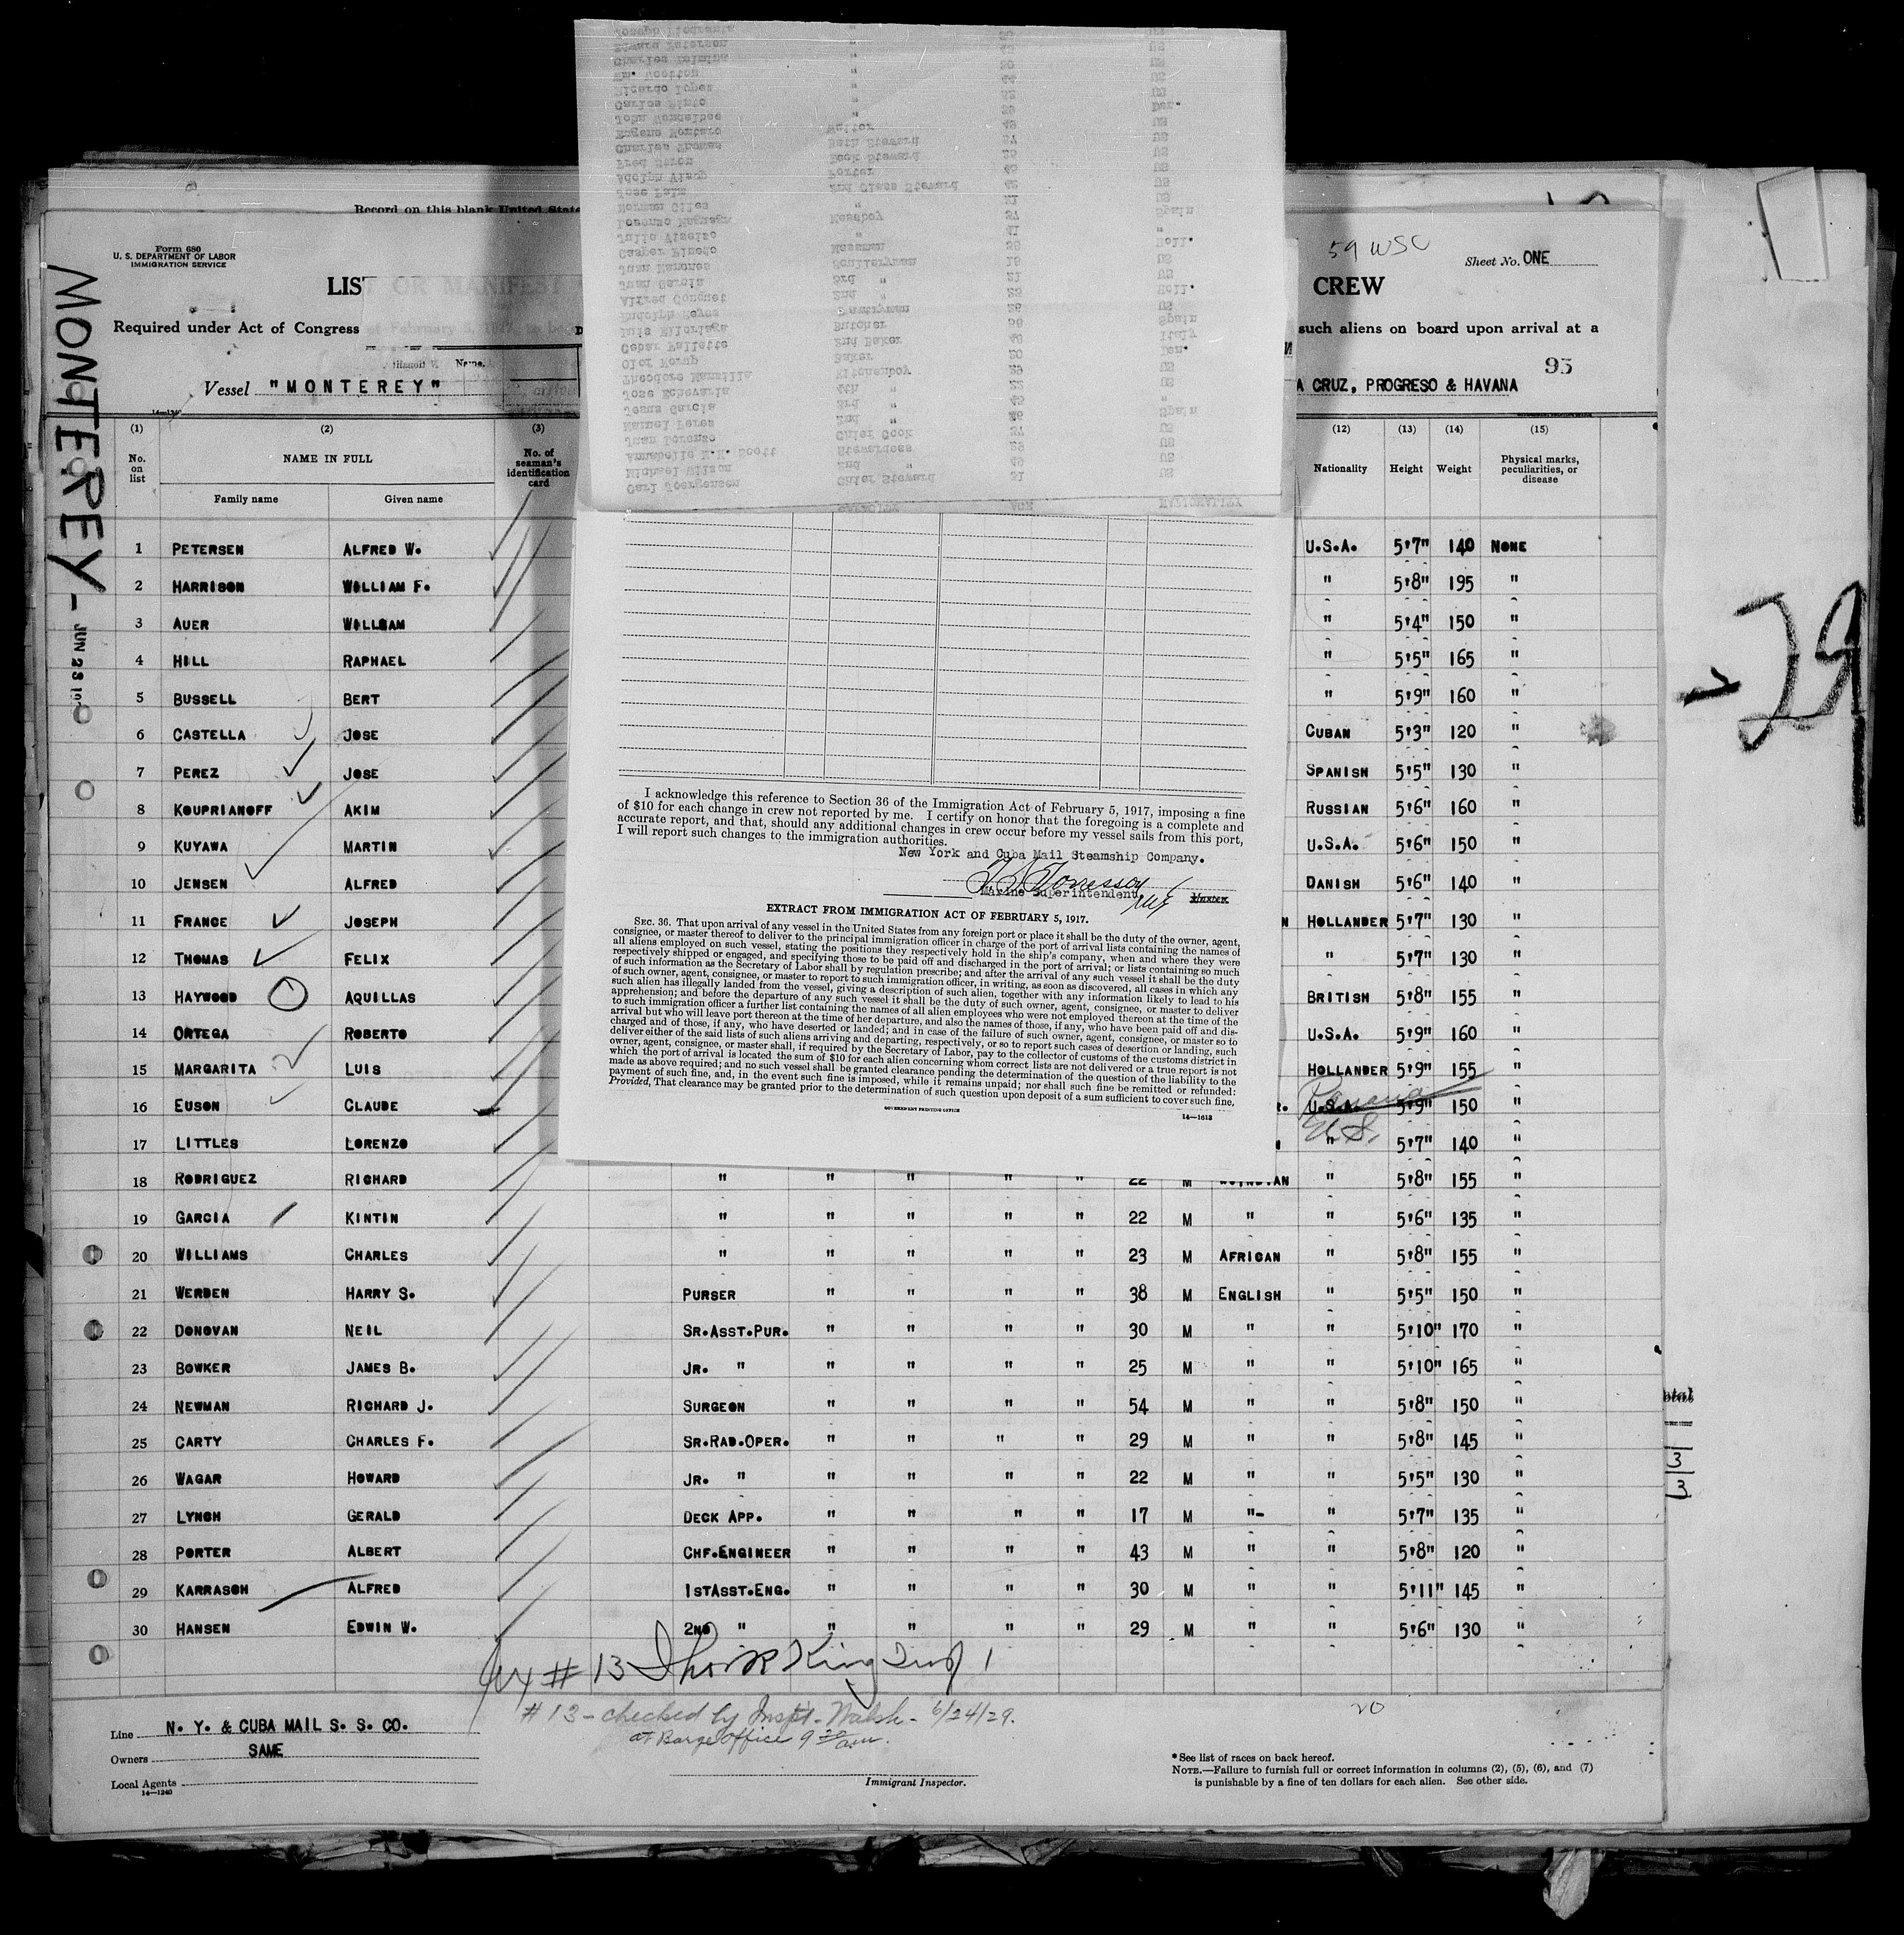 Record on this blank United State
Form 680
U. S. DEPARTMENT OF LABOR
IMMIGRATION SERVICE
59 WSC
Sheet No. ONE
LIST OR MANIFEST
CREW
Required under Act of Congress of February 5, 1917,
such aliens on board upon arrival at a
95
Vessel "MONTEREY"
A CRUZ, PROGRESO & HAVANA
14—1240
MONTEREY -
JUN 23
- 29
(1) (2) (3) (12) (13) (14) (15)
No. on list
NAME IN FULL
Family name Given name
No. of seaman's identification card
Nationality Height Weight Physical marks, peculiarities, or disease
1 PETERSEN ALFRED W. U.S.A. 5'7" 140 NONE
2 HARRISON WILLIAM F. " 5'8" 195 "
3 AUER WILLIAM " 5'4" 150 "
4 HILL RAPHAEL " 5'5" 165 "
5 BUSSELL BERT " 5'9" 160 "
6 CASTELLA JOSE CUBAN 5'3" 120 "
7 PEREZ JOSE SPANISH 5'5" 130 "
8 KOUPRIANOFF AKIM RUSSIAN 5'6" 160 "
9 KUYAWA MARTIN U.S.A. 5'6" 150 "
10 JENSEN ALFRED DANISH 5'6" 140 "
11 FRANCE JOSEPH N HOLLANDER 5'7" 130 "
12 THOMAS FELIX " 5'7" 130 "
13 HAYWOOD AQUILLAS BRITISH 5'8" 155 "
14 ORTEGA ROBERTO U.S.A. 5'9" 160 "
15 MARGARITA LUIS HOLLANDER 5'9" 155 "
16 EUSON CLAUDE R. U.S.A. Panama 5'9" 150 "
U.S.
17 LITTLES LORENZO " 5'7" 140 "
18 RODRIGUEZ RICHARD " " " " " 22 M W.INDIAN " 5'8" 155 "
19 GARCIA KINTIN " " " " " 22 M " " 5'6" 135 "
20 WILLIAMS CHARLES " " " " " 23 M AFRICAN " 5'8" 155 "
21 WERDEN HARRY S. PURSER " " " " 38 M ENGLISH " 5'5" 150 "
22 DONOVAN NEIL SR.ASST.PUR. " " " " 30 M " " 5'10" 170 "
23 BOWKER JAMES B. JR. " " " " " 25 M " " 5'10" 165 "
24 NEWMAN RICHARD J. SURGEON " " " " 54 M " " 5'8" 150 "
25 CARTY CHARLES F. SR.RAD.OPER. " " " " 29 M " " 5'8" 145 "
26 WAGAR HOWARD JR. " " " " " 22 M " " 5'5" 130 "
27 LYNCH GERALD DECK APP. " " " " 17 M "- " 5'7" 135 "
28 PORTER ALBERT CHF.ENGINEER " " " " 43 M " " 5'8" 120 "
29 KARRASCH ALFRED 1STASST.ENG. " " " " 30 M " " 5'11" 145 "
30 HANSEN EDWIN W. 2ND " " " " " 29 M " " 5'6" 130 "
# 13
# 13 - checked by Inspt. Walsh - 6/24/29.
at Barge office 9 30 am.
20
Line N. Y. & CUBA MAIL S. S. CO.
Owners SAME
Local Agents
14—1240
Immigrant Inspector.
*See list of races on back hereof.
NOTE.—Failure to furnish full or correct information in columns (2), (5), (6), and (7)
is punishable by a fine of ten dollars for each alien. See other side.
otal
3
3
CAPACITY AGE NATIONALITY
Carl Joergensen Chief Steward 51 US
Michael Wilson 2nd " 49 US
Annabelle M.K. Scott Stewardess 29 US
Juan Lorenzo Chief Cook 37 US
Manuel Peres 2nd " 26 Spain
Jesus Garcia 3rd " 45 "
Jose Echevaria 4th " 22 US
Theodore Mansilla Kitchenboy 29 US
Olof Korup Baker 20 Den.
Cesar Vallette 2nd Baker 48 Italy
Luis Elloriaga Butcher 36 Spain
Rudolph Reyes Pantryman 26 US
Alfred Conquet 2nd " 25 Holl.
Juan Garcia 3rd " 21 US
Juan Mahones Sculleryman 18 US
Casper Pinedo Messman 38 Holl.
Julio Viseiso " 41 "
Lorenzo Messboy 37 Spain
Norman Giles " 21 US
Jose Palm 2nd Class Steward 42 US
Adolph Porter 43 US
Fred Deck Steward 25 US
Charles Thomas Bath Steward 37 US
Eugene Montaro Waiter 49 US
John Wendelboe " 39 Den.
Carlos Pinto " 32 US
Ricardo Lopez " 44 US
Wm. Wootton " 30 US
Charles " 43 US
Edward Peterson "
Joseph
I acknowledge this reference to Section 36 of the Immigration Act of February 5, 1917, imposing a fine
of $10 for each change in crew not reported by me. I certify on honor that the foregoing is a complete and
accurate report, and that, should any additional changes in crew occur before my vessel sails from this port,
I will report such changes to the immigration authorities.
New York and Cuba Mail Steamship Company.
Marine Superintendent. Master.
EXTRACT FROM IMMIGRATION ACT OF FEBRUARY 5, 1917.
SEC. 36. That upon arrival of any vessel in the United States from any foreign port or place it shall be the duty of the owner, agent,
consignee, or master thereof to deliver to the principal immigration officer in charge of the port of arrival lists containing the names of
all aliens employed on such vessel, stating the positions they respectively hold in the ship's company, when and where they were
respectively shipped or engaged, and specifying those to be paid off and discharged in the port of arrival; or lists containing so much
of such information as the Secretary of Labor shall by regulation prescribe; and after the arrival of any such vessel it shall be the duty
of such owner, agent, consignee, or master to report to such immigration officer, in writing, as soon as discovered, all cases in which any
such alien has illegally landed from the vessel, giving a description of such alien, together with any information likely to lead to his
apprehension; and before the departure of any such vessel it shall be the duty of such owner, agent, consignee, or master to deliver
to such immigration officer a further list containing the names of all alien employees who were not employed thereon at the time of the
arrival but who will leave port thereon at the time of her departure, and also the names of those, if any, who have been paid off and dis-
charged and of those, if any, who have deserted or landed; and in case of the failure of such owner, agent, consignee, or master so to
deliver either of the said lists of such aliens arriving and departing, respectively, or so to report such cases of desertion or landing, such
owner, agent, consignee, or master shall, if required by the Secretary of Labor, pay to the collector of customs of the customs district in
which the port of arrival is located the sum of $10 for each alien concerning whom correct lists are not delivered or a true report is not
made as above required; and no such vessel shall be granted clearance pending the determination of the question of the liability to the
payment of such fine, and, in the event such fine is imposed, while it remains unpaid; nor shall such fine be remitted or refunded:
Provided, That clearance may be granted prior to the determination of such question upon deposit of a sum sufficient to cover such fine.
GOVERNMENT PRINTING OFFICE
14—1613